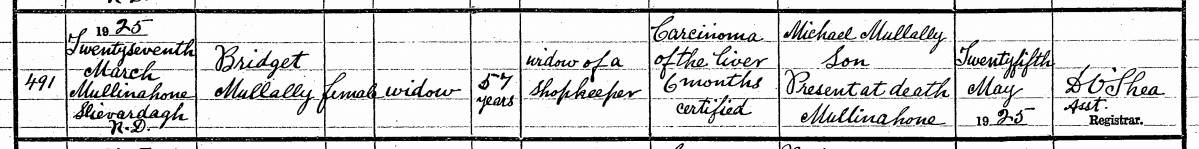 491
1925
Twentyseventh
March
Mullinahone
Slievardagh
R.D.
Bridget
Mullally
female
widow
57
years
widow of a
Shopkeeper
Carcinoma
of the liver
6 months
certified
Michael Mullally
Son
Present at death
Mullinahone
Twentyfifth
May
1925
D O'Shea
Asst.
Registrar.